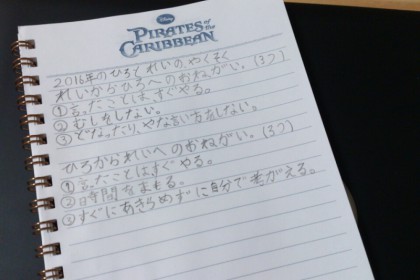 Disney
PIRATES of the
CARIBBEAN
2016年のひろとれいの、やくそく
れいからひろへのおねがい。(3つ)
①言ったことは、すぐやる。
②むしをしない。
③どなったり、やな言い方をしない。
ひろかられいへのおねがい。(3つ)
①言ったことはすぐやる。
②時間をまもる。
③すぐにあきらめずに自分で考がえる。